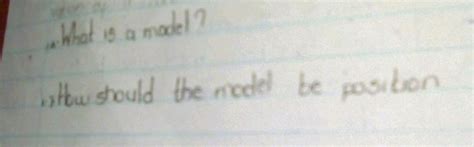 What is a model?
How should the model be position